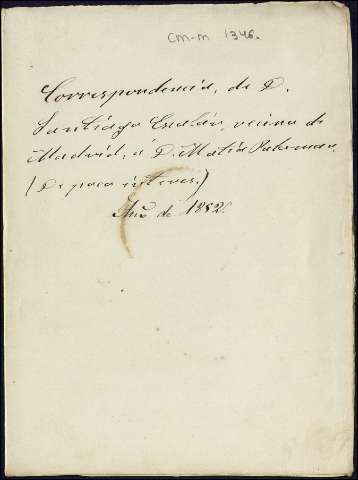 CM-M 1346.
Correspondencia, de D.
Santiago Escalár, vecino de
Madrid, á D. Matías
(De poco interes.)
Año de 1852.